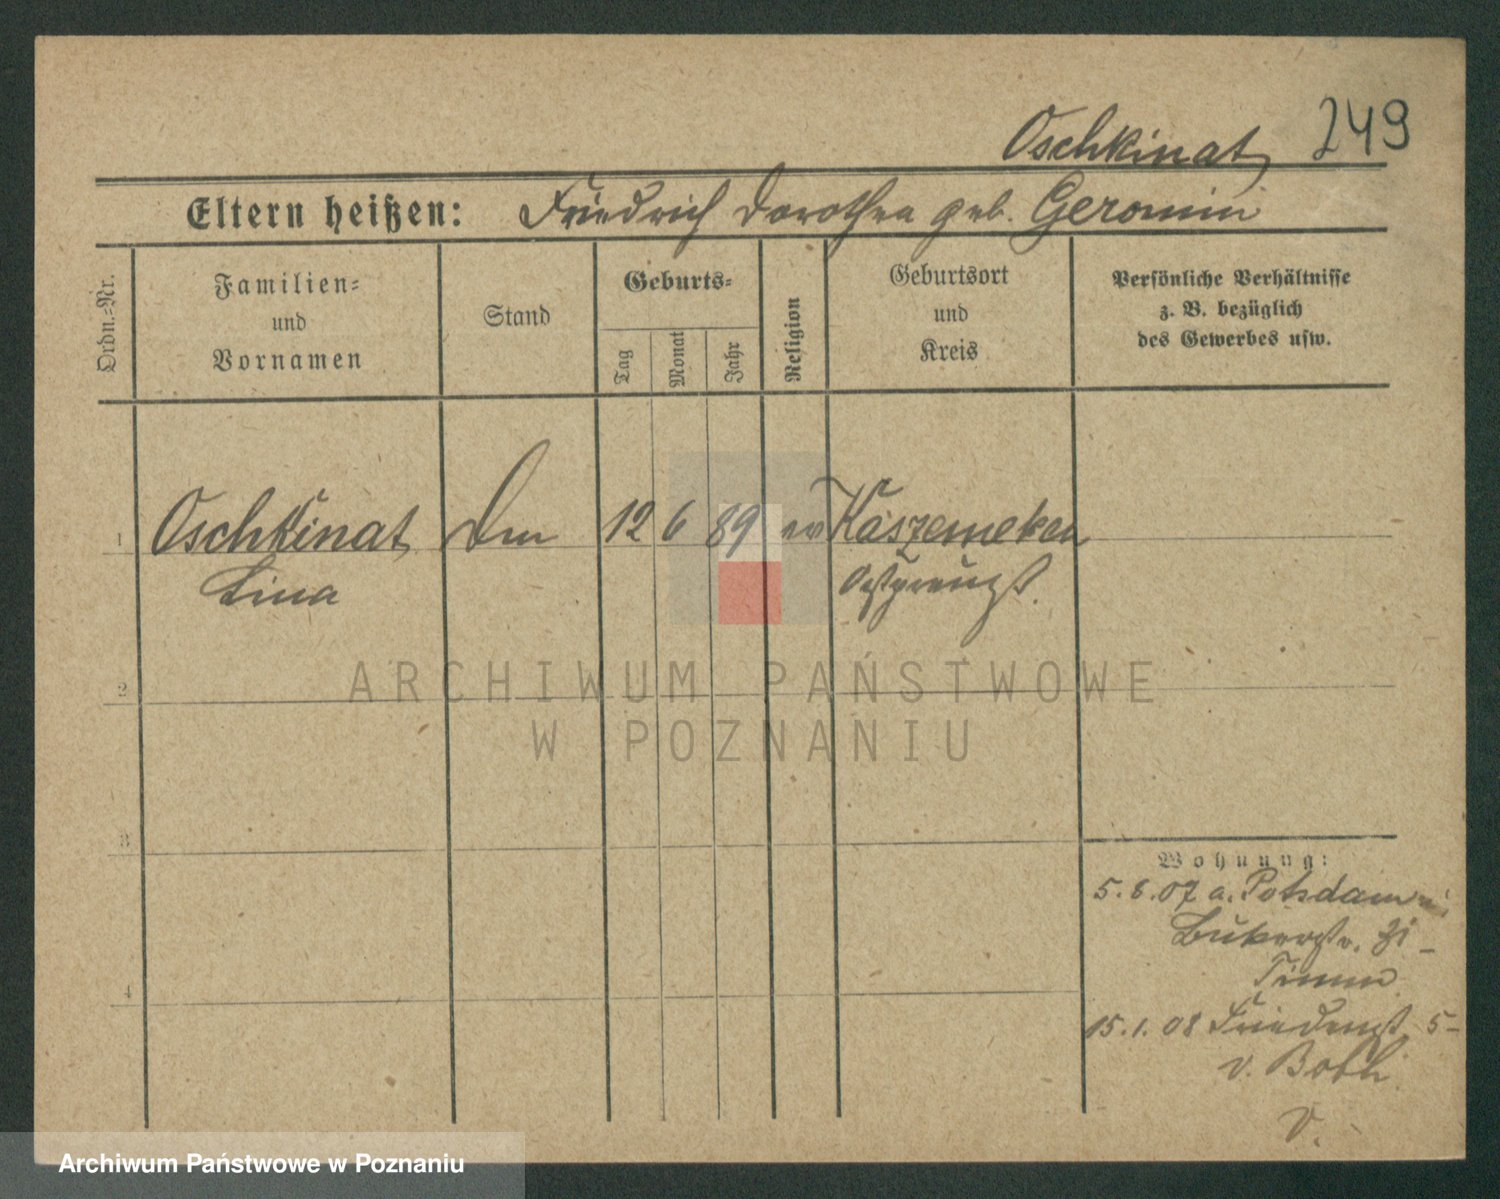 Oschkinat 249
Eltern heißen: Friedrich Dorothea geb. Geromin
Ordn.-Nr.
Familien-
und
Vornamen
Stand
Geburts-
Tag
Monat
Jahr
Religion
Geburtsort
und
Kreis
Persönliche Verhältnisse
z. B. bezüglich
des Gewerbes usw.
1 Oschkinat 12 6 89 ev Kaszemeken
Lina Ostpreuß.
2
3
4
Wohnung:
5.6.07 a. Potsdam
Bukerstr. 31 -
Timm
15.1.08 Friedenst 5-
v. Both
v.
ARCHIWUM PAŃSTWOWE
W POZNANIU
Archiwum Państwowe w Poznaniu